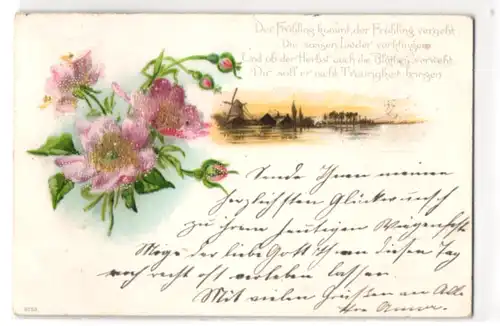 Der Frühling kommt, der Frühling vergeht
Die jungen Lieder verklingen
Und ob der Herbst auch die Blüthen verweht
Dir soll er nicht Traurigkeit bringen
Sende Ihnen meinen
herzlichsten Glückwunsch
zu ihrem heutigen Wiegenfeste
Möge der liebe Gott Ihnen diesen Tag
noch recht oft erleben lassen.
Mit vielen Grüßen an Alle
Ihre